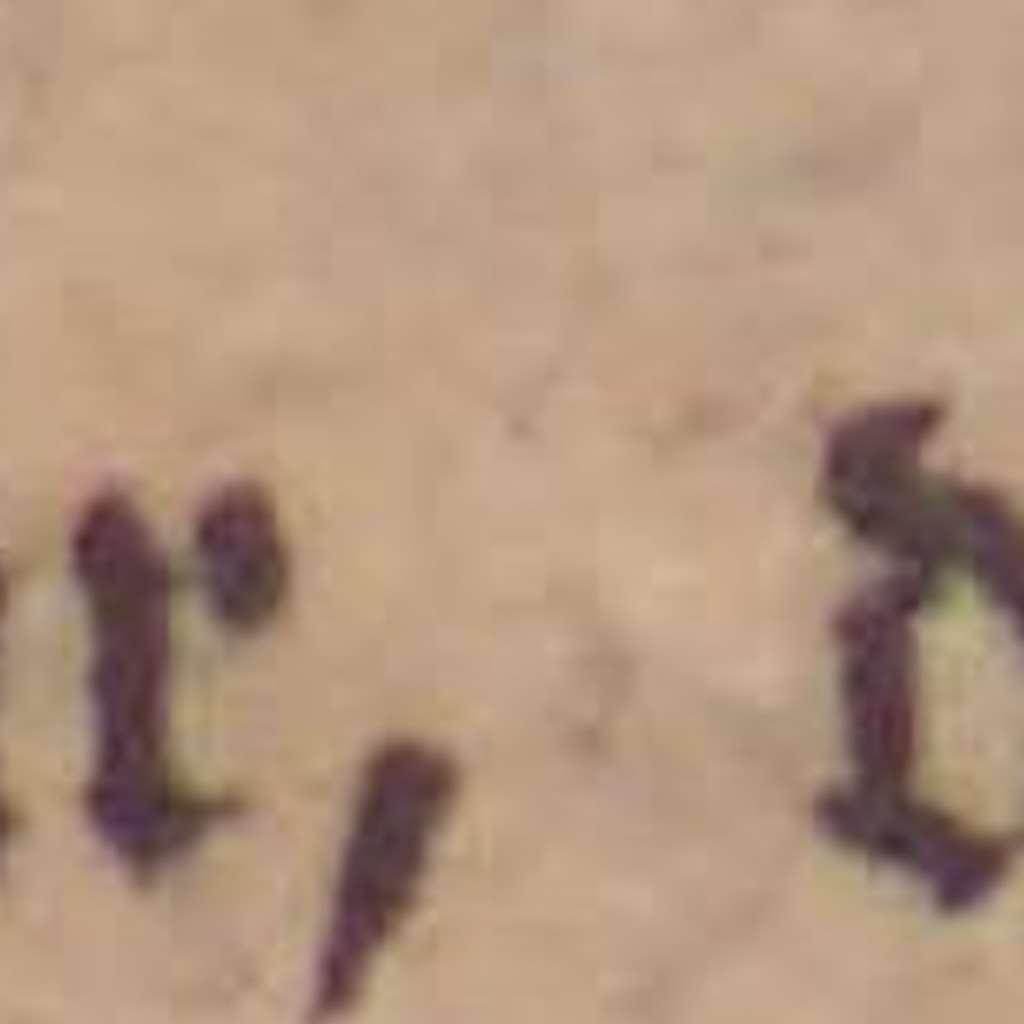 r, d